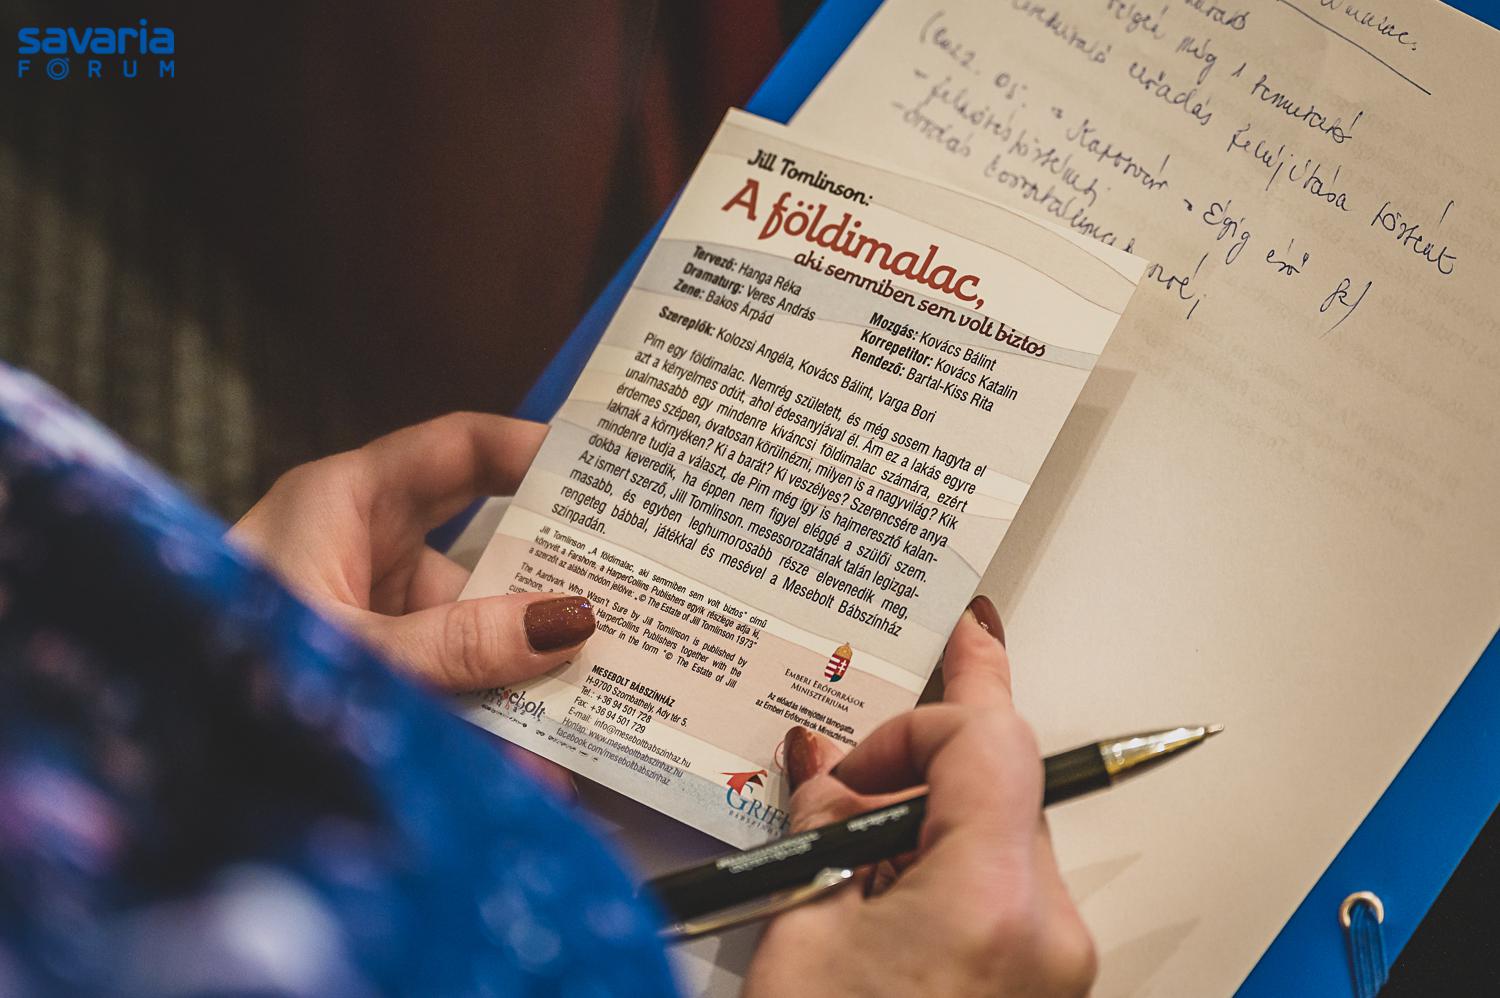 savaria
FÓRUM
még 1 bemutató
előadás felújítása történt
Kaposvár
Égig érő
Jill Tomlinson:
A földimalac,
aki semmiben sem volt biztos
Tervező: Hanga Réka
Dramaturg: Veres András
Zene: Bakos Árpád
Mozgás: Kovács Bálint
Korrepetitor: Kovács Katalin
Rendező: Bartal-Kiss Rita
Szereplők: Kolozsi Angéla, Kovács Bálint, Varga Bori
Pim egy földimalac. Nemrég született, és még sosem hagyta el
azt a kényelmes odút, ahol édesanyjával él. Ám ez a lakás egyre
unalmasabb egy mindenre kíváncsi földimalac számára, ezért
érdemes szépen, óvatosan körülnézni, milyen is a nagyvilág? Kik
laknak a környéken? Ki a barát? Ki veszélyes? Szerencsére anya
mindenre tudja a választ, de Pim még így is hajmeresztő kalan-
dokba keveredik, ha éppen nem figyel eléggé a szülői szem.
Az ismert szerző, Jill Tomlinson, mesesorozatának talán legizgal-
masabb, és egyben leghumorosabb része elevenedik meg,
rengeteg bábbal, játékkal és mesével a Mesebolt Bábszínház
színpadán.
Jill Tomlinson „A földimalac, aki semmiben sem volt biztos" című
könyvét a Farshore, a HarperCollins Publishers egyik részlege adja ki,
a szerzőt az alábbi módon jelölve: „© The Estate of Jill Tomlinson 1973"
The Aardvark Who Wasn't Sure by Jill Tomlinson is published by
Farshore, HarperCollins Publishers together with the
Author in the form "© The Estate of Jill
MESEBOLT BÁBSZÍNHÁZ
H-9700 Szombathely, Ady tér 5.
Tel.: +36 94 501 728
Fax: +36 94 501 729
E-mail: info@meseboltbabszinhaz.hu
Honlap: www.meseboltbabszinhaz.hu
facebook.com/meseboltbabszinhaz
EMBERI ERŐFORRÁSOK
MINISZTÉRIUMA
Az előadás létrejöttét támogatta
az Emberi Erőforrások Minisztériuma